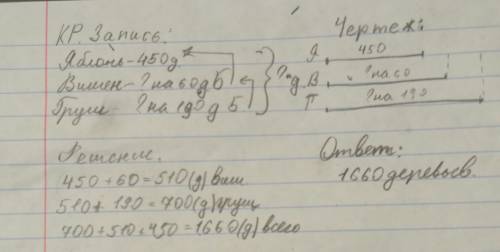 КР. Запись:
Яблонь - 450д
Вишен - ? на 60д Б
Груш - ? на 190д Б
? д.
Чертеж:
Я 450
В ? на 60
Г ? на 190
Решение.
450 + 60 = 510 (д) виш
510 + 190 = 700 (д) груш
700 + 510 + 450 = 1660 (д) всего
Ответ:
1660 деревьев.